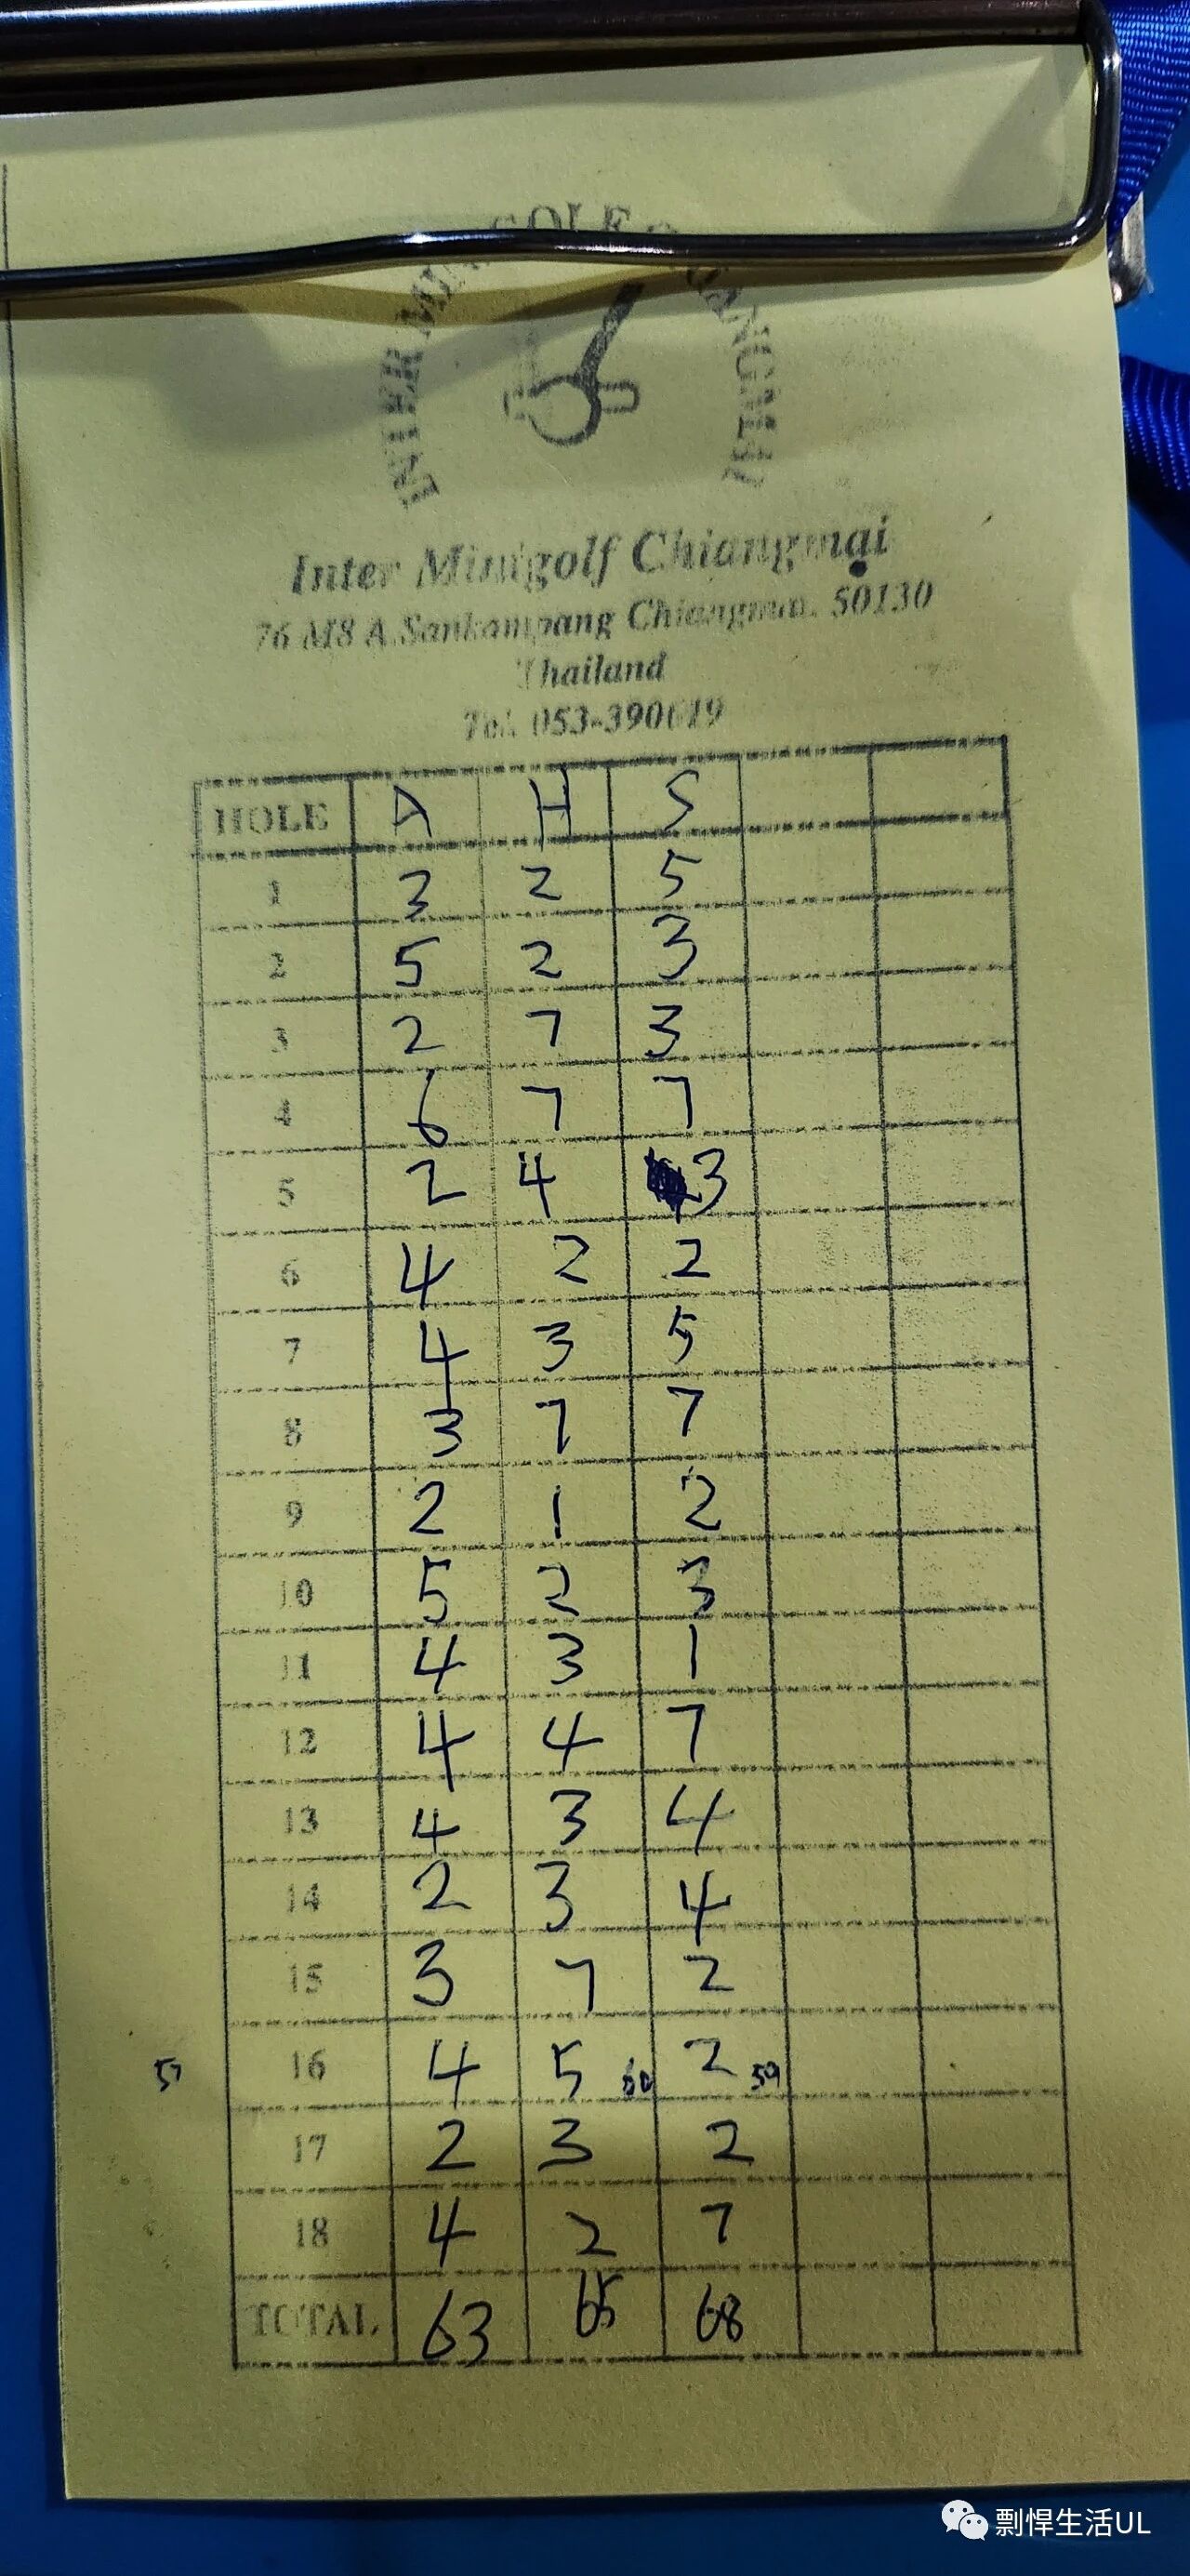 INTER MINI GOLF
Inter Minigolf Chiangmai
76 M8 A.Sankampang Chiangmai. 50130
Thailand
Tel. 053-390619
HOLE A H S
1 3 2 5
2 5 2 3
3 2 7 3
4 6 7 7
5 2 4 3
6 4 2 2
7 4 3 5
8 3 7 7
9 2 1 2
10 5 2 3
11 4 3 1
12 4 4 7
13 4 3 4
14 2 3 4
15 3 7 2
57 16 4 5 60 2 59
17 2 3 2
18 4 2 7
TOTAL 63 65 68
剽悍生活UL